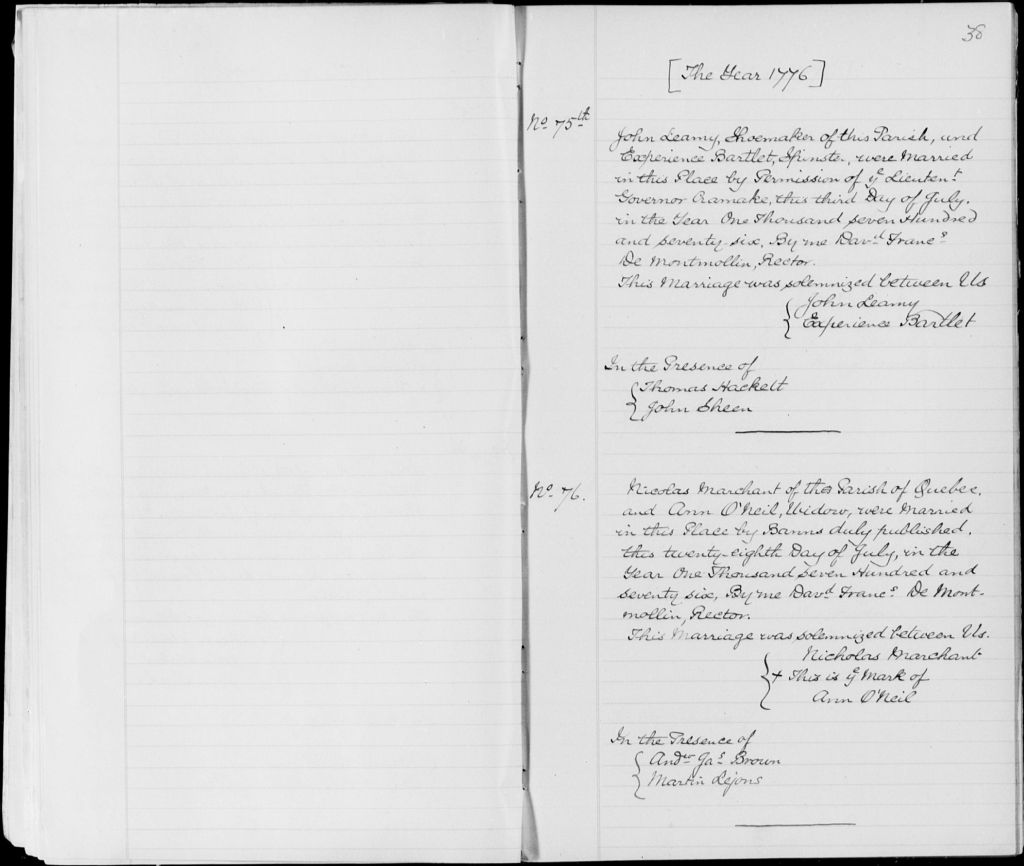 38
[The Year 1776]
No. 75th
John Leamy, Shoemaker of this Parish, and
Experience Bartlet, Spinster, were Married
in this Place by Permission of ye Lieutent
Governor Cramake, this third Day of July,
in the Year One Thousand seven Hundred
and seventy-six, By me Davd Francs
De Montmollin, Rector.
This Marriage was solemnized between Us
John Leamy
Experience Bartlet
In the Presence of
Thomas Hackett
John Sheen
No. 76.
Nicolas Marchant of the Parish of Quebec,
and Ann O'Neil, Widow, were Married
in this Place by Banns duly published,
this twenty-eighth Day of July, in the
Year One Thousand seven Hundred and
seventy six, By me Davd Francs De Mont-
mollin, Rector.
This Marriage was solemnized between Us.
Nicholas Marchant
+ This is ye Mark of
Ann O'Neil
In the Presence of
Andw Jas Brown
Martin Lejons